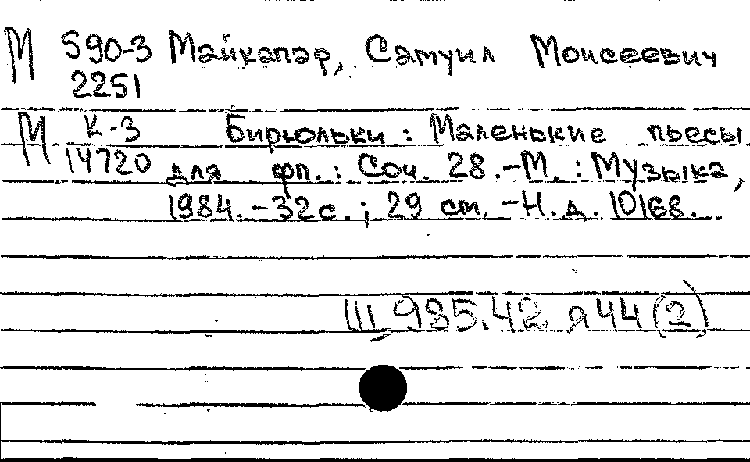 М 590-3 Майкапар, Самуил Моисеевич
2251
М К-3 Бирюльки: Маленькие пьесы
14720 для фп.: Соч. 28.-М.: Музыка,
1984.-32с.; 29 см.-Н.д. 10168.
Щ 985.42 я44(2)